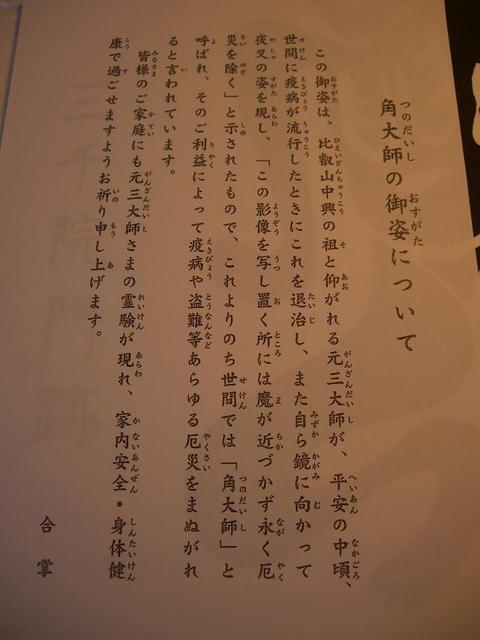 角大師の御姿について
この御姿は、比叡山中興の祖と仰がれる元三大師が、平安の中頃、
世間に疫病が流行したときにこれを退治し、また自ら鏡に向かって
夜叉の姿を現し、「この影像を写し置く所には魔が近づかず永く厄
災を除く」と示されたもので、これよりのち世間では「角大師」と
呼ばれ、そのご利益によって疫病や盗難等あらゆる厄災をまぬがれ
ると言われています。
皆様のご家庭にも元三大師さまの霊験が現れ、家内安全・身体健
康で過ごせますようお祈り申し上げます。
合掌